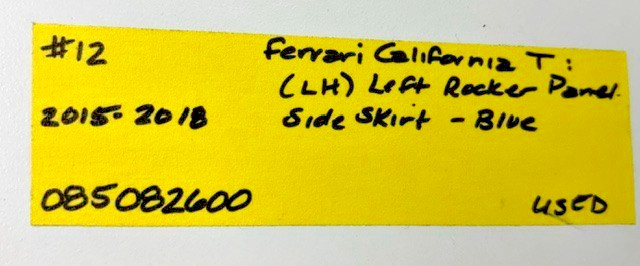 #12 Ferrari California T:
(LH) Left Rocker Panel.
2015-2018 Side Skirt - Blue
085082600 USED